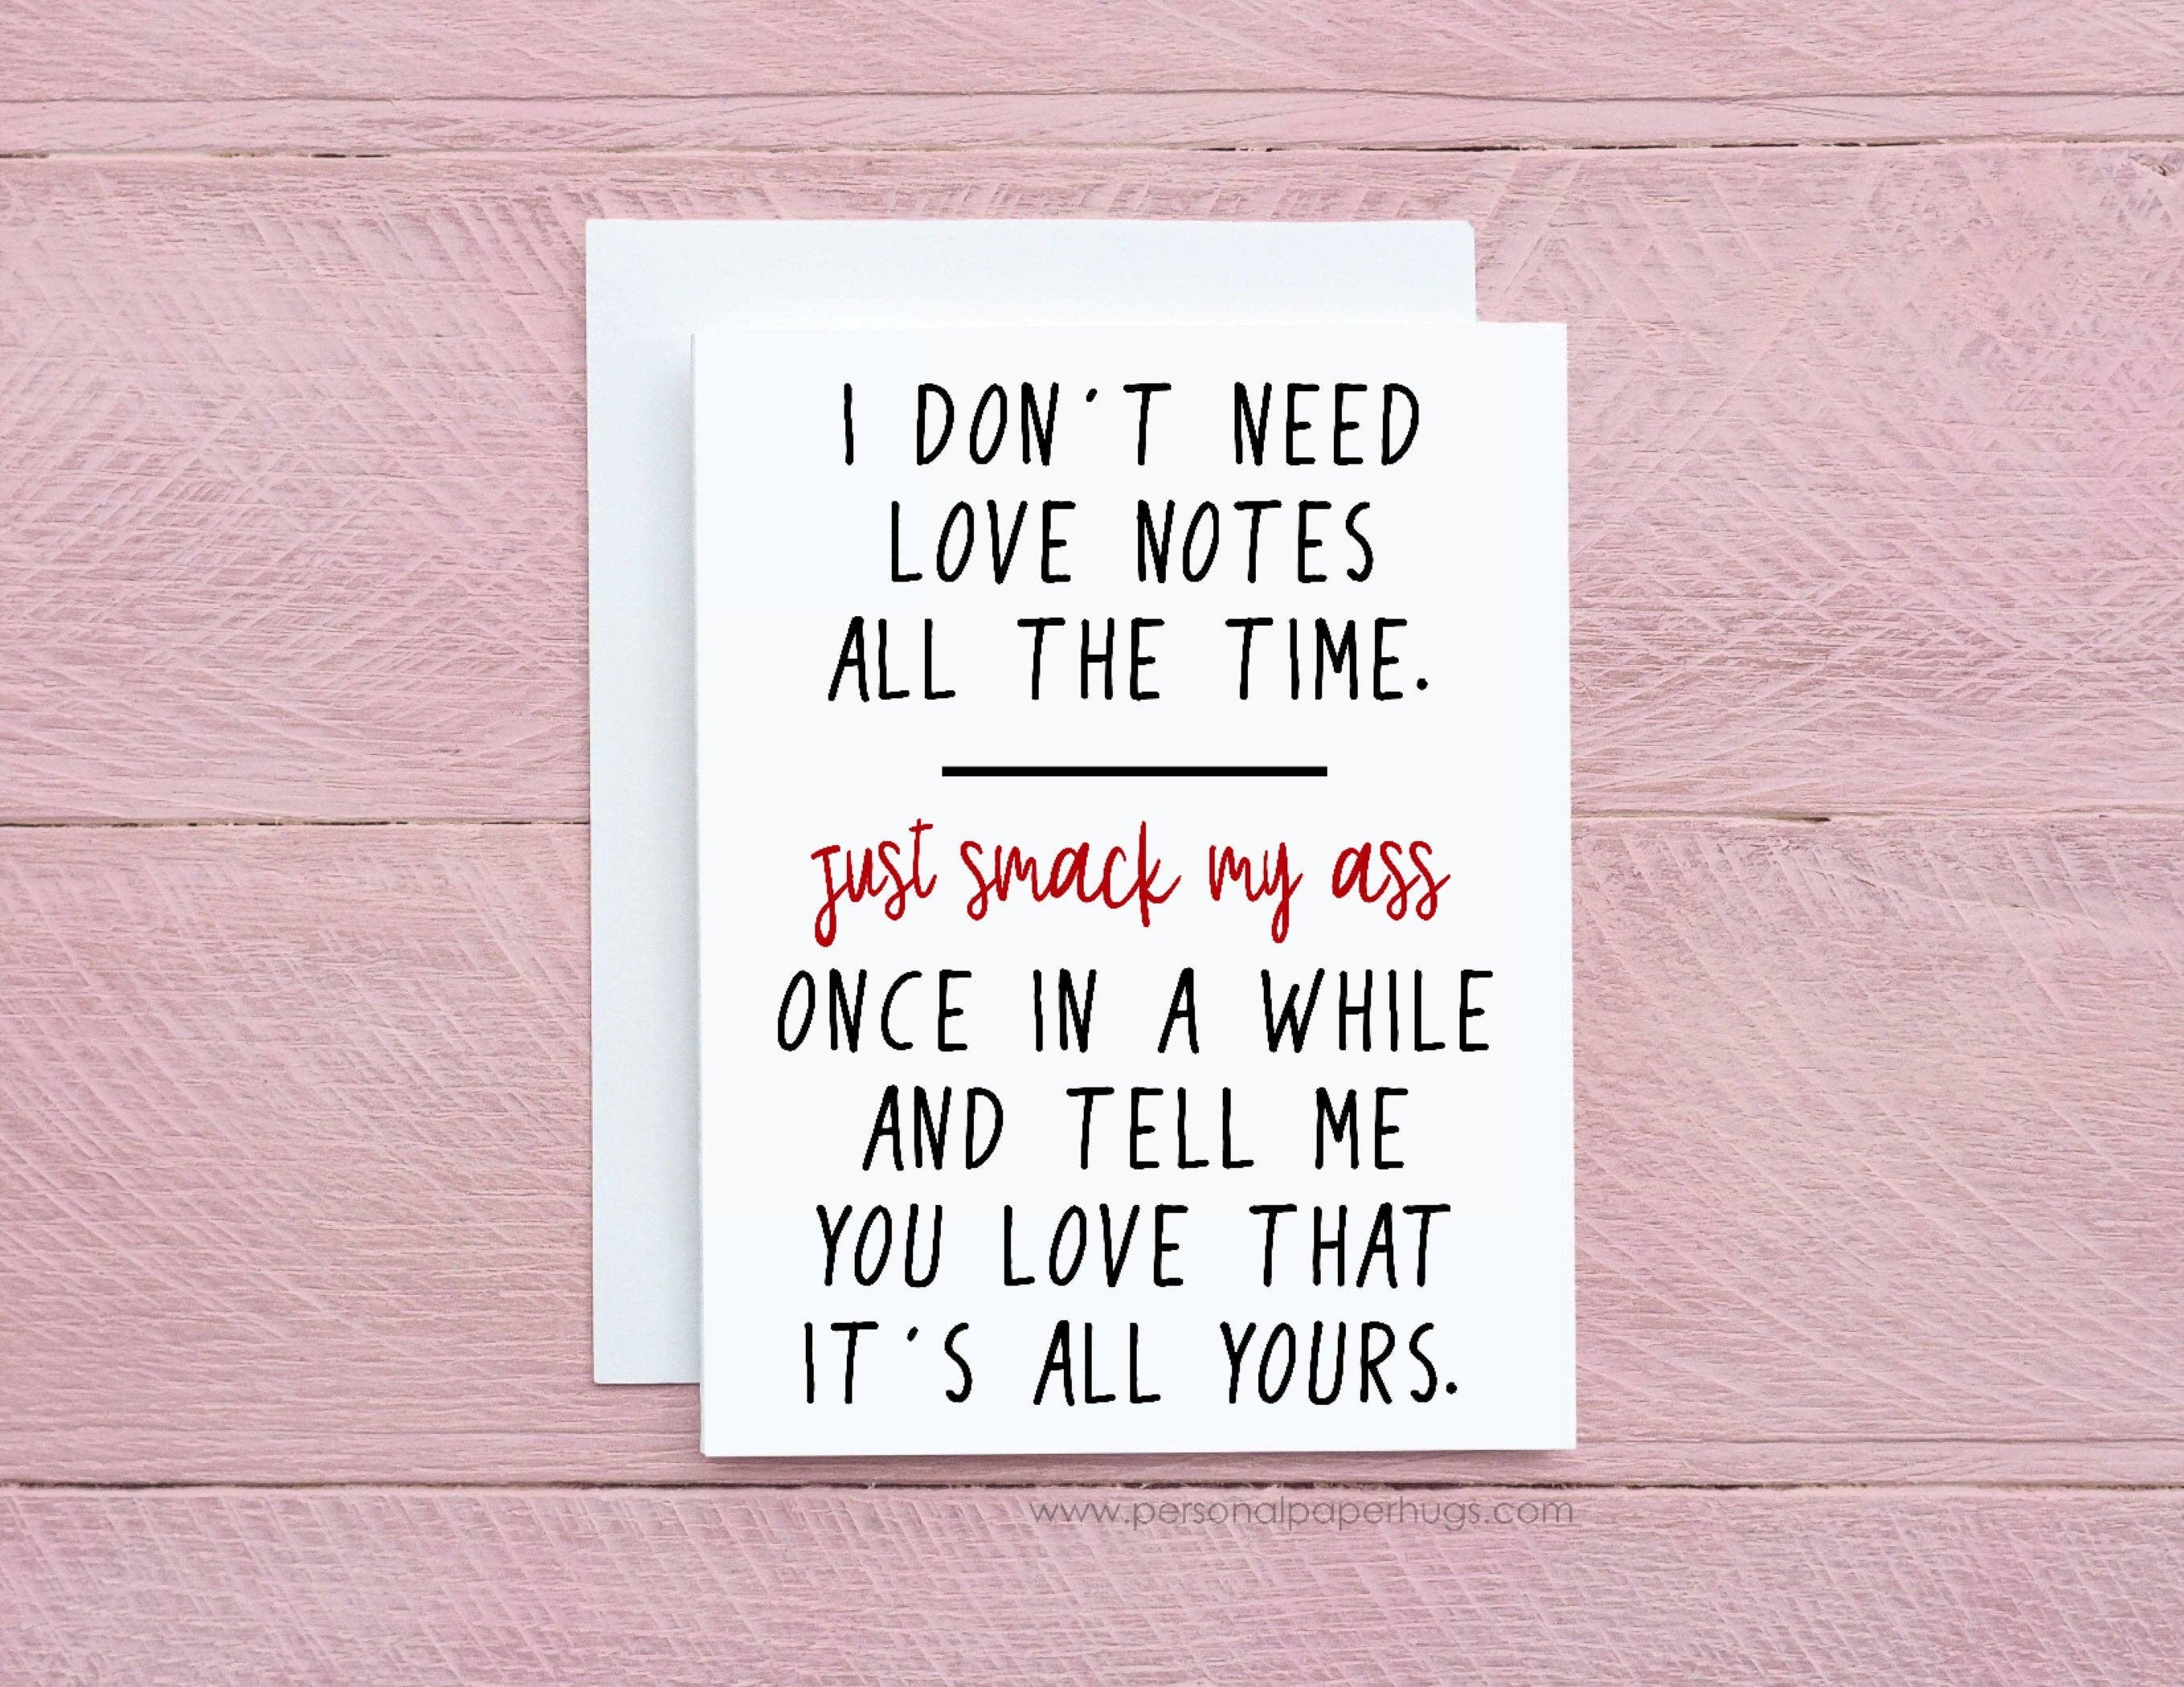 I DON'T NEED
LOVE NOTES
ALL THE TIME.
just smack my ass
ONCE IN A WHILE
AND TELL ME
YOU LOVE THAT
IT'S ALL YOURS.
www.personalpaperhugs.com